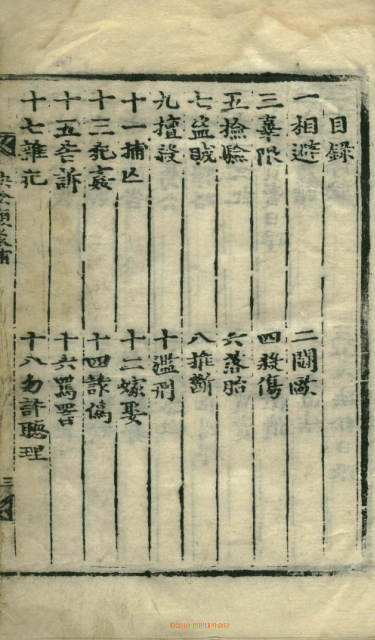 目録
一相避 二鬪毆
三辜限 四殺傷
五撿驗 六落胎
七盜賊 八推斷
九擅殺 十濫刑
十一捕亡 十二嫁娶
十三犯姦 十四詐僞
十五告訴 十六罵詈
十七雜犯 十八勿許聽理
三